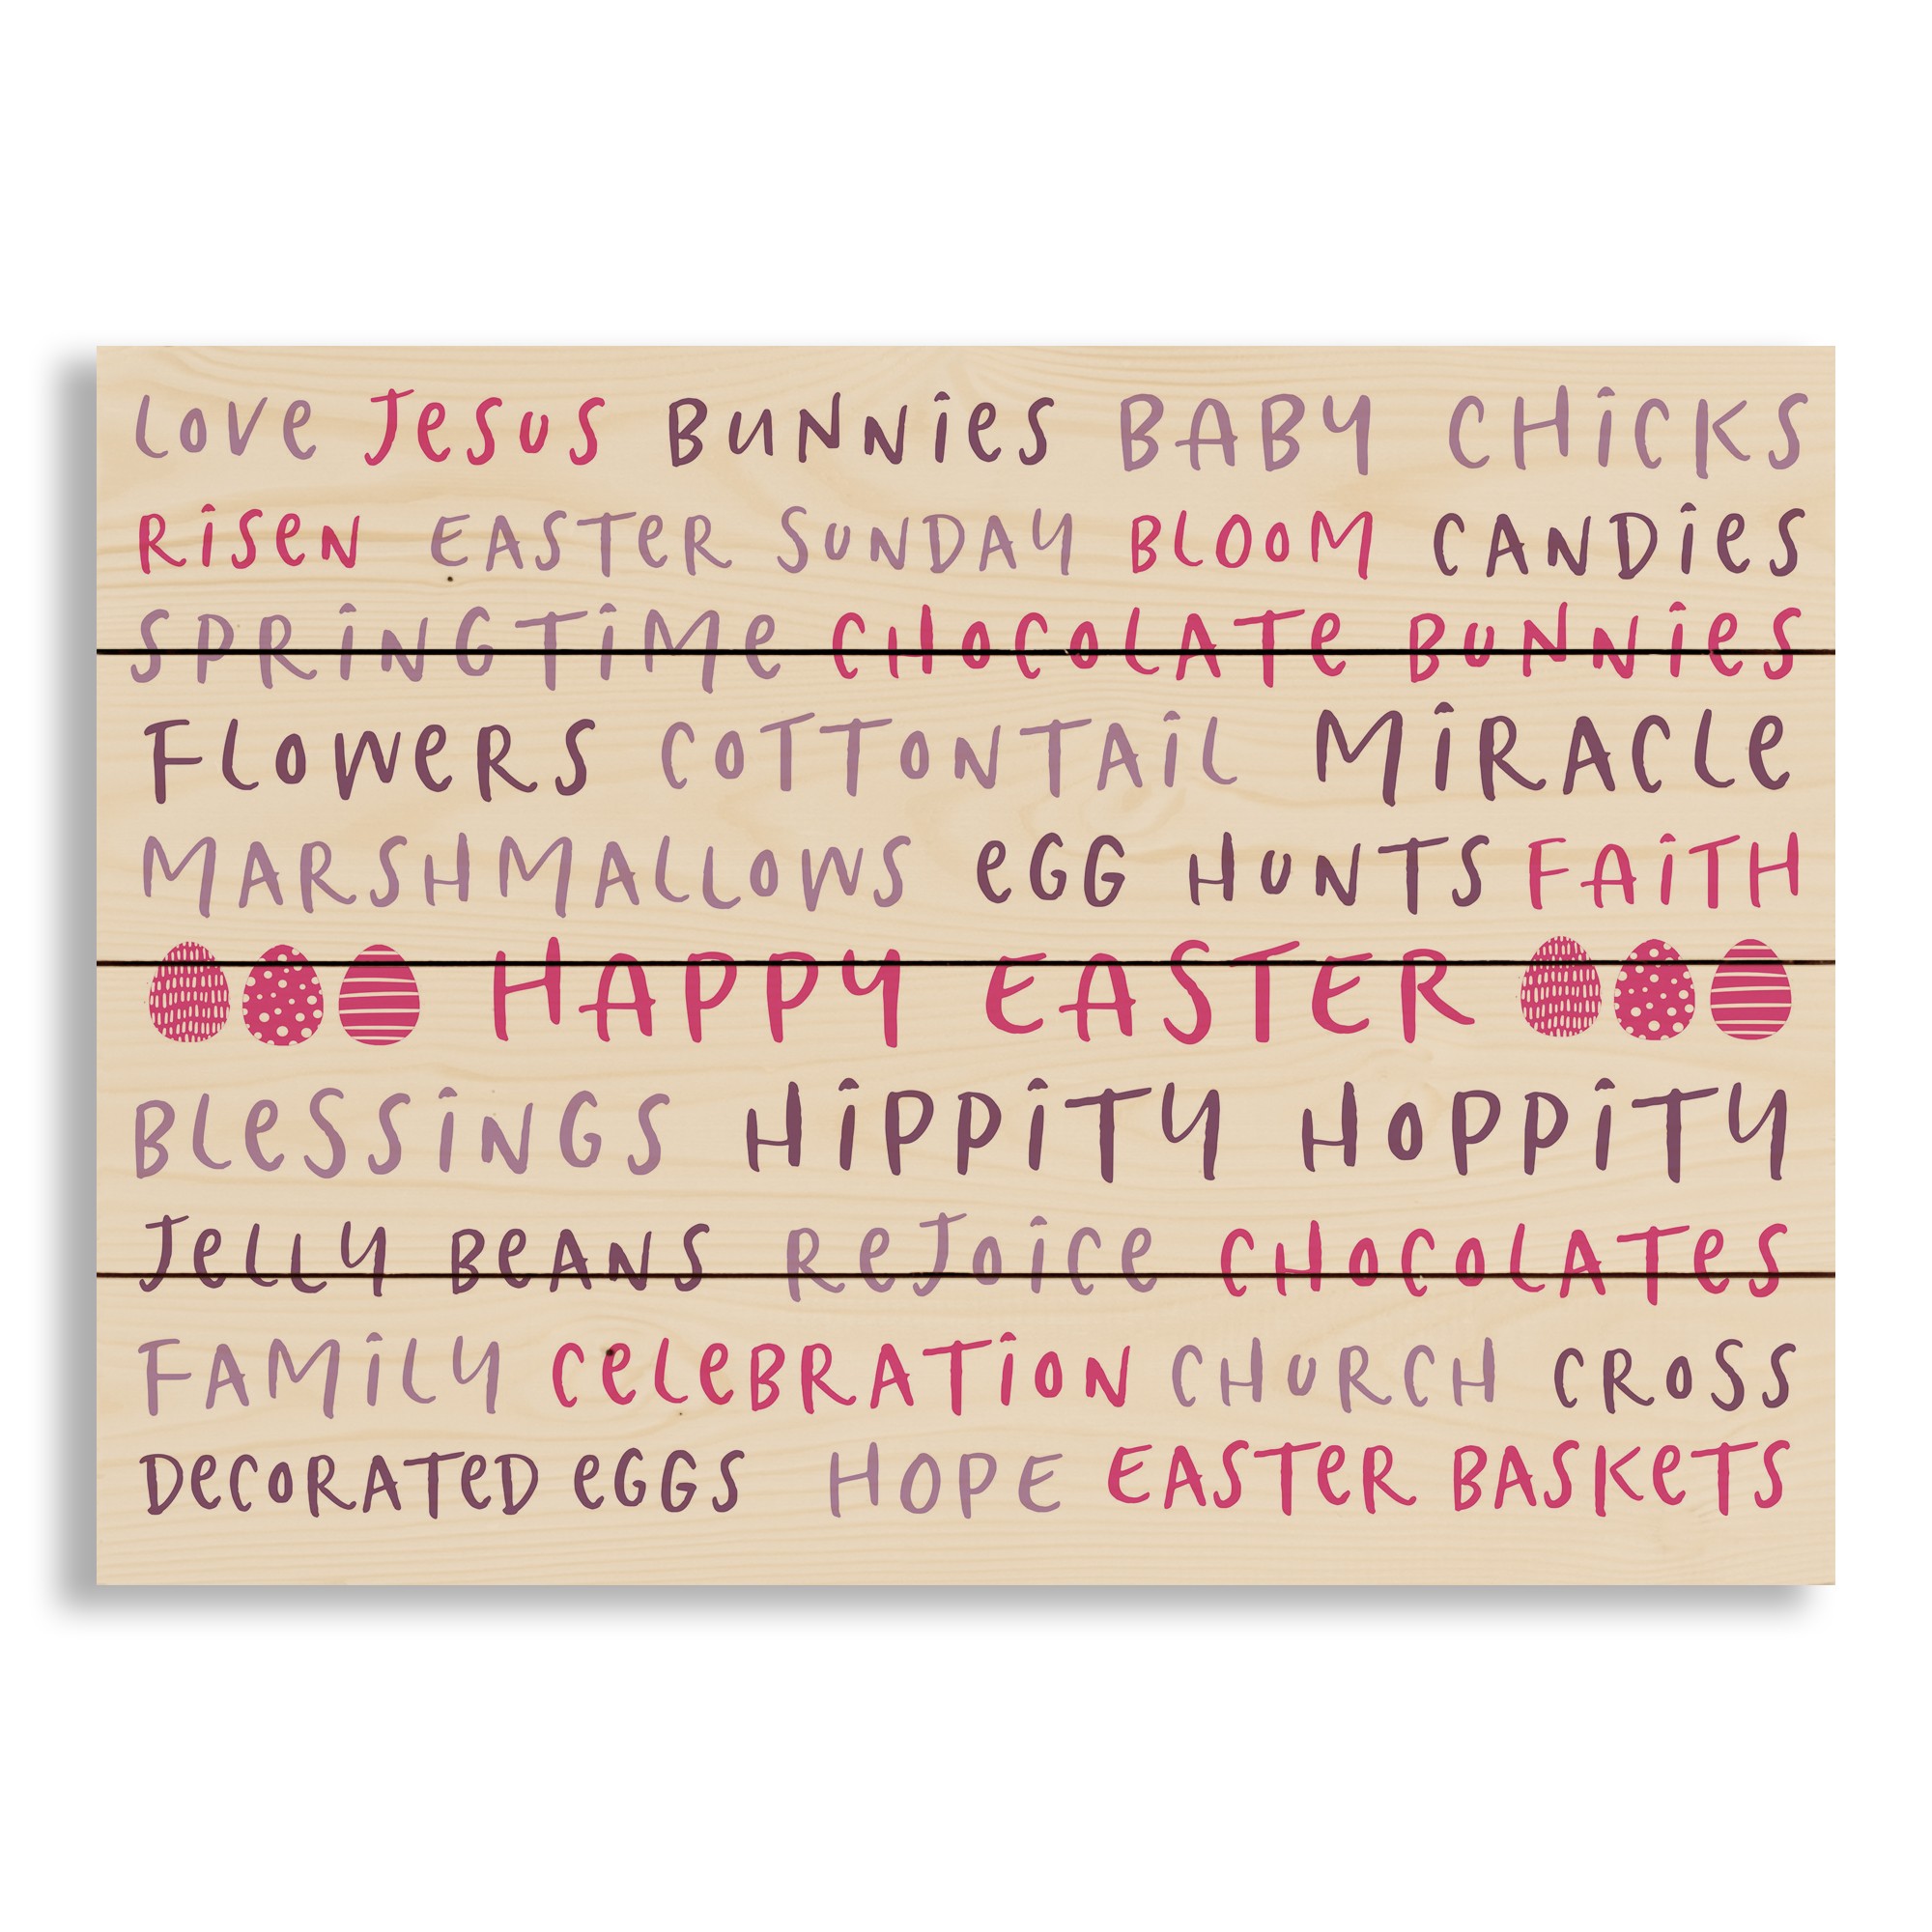 LOVE JESUS BUNNIES BABY CHICKS
RISEN EASTER SUNDAY BLOOM CANDIES
SPRINGTIME CHOCOLATE BUNNIES
FLOWERS COTTONTAIL MIRACLE
MARSHMALLOWS EGG HUNTS FAITH
HAPPY EASTER
BLESSINGS HIPPITY HOPPITY
JELLY BEANS REJOICE CHOCOLATES
FAMILY CELEBRATION CHURCH CROSS
DECORATED EGGS HOPE EASTER BASKETS